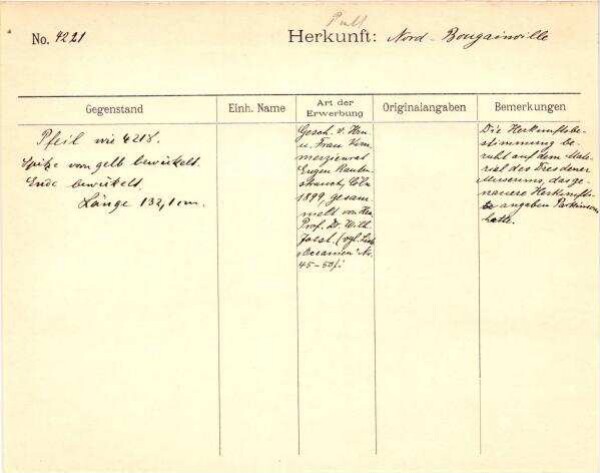 No. 4221
Herkunft: Nord-Bougainville
Gegenstand
Einh. Name
Art der Erwerbung
Originalangaben
Bemerkungen
Pfeil wie 4218.
Spitze vorn gelb bewickelt.
Ende bewickelt.
Länge 132,1 cm.
Gesch. v. Herrn
u. Frau Kom-
merzienrat
Eugen Rauten-
strauch, Cöln
1899, gesam-
melt von Hrn
Prof. Dr. Wilh.
Joest. (vgl.
"Oceanien" No.
45-50).
Die Herkunftsbe-
stimmung be-
ruht auf dem Mate-
rial des Dresdener
Museums, das ge-
nauere Herkunfts-
angaben Parkinsons
hatte.